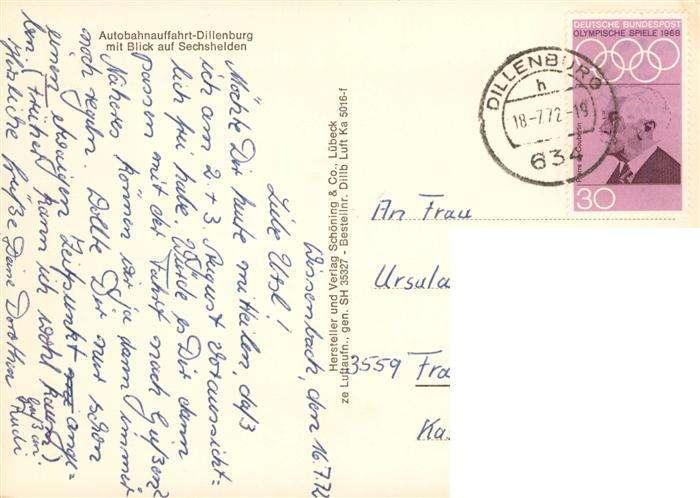 Autobahnauffahrt-Dillenburg
mit Blick auf Sechshelden
DEUTSCHE BUNDESPOST
OLYMPISCHE SPIELE 1968
Pierre de Coubertin
30
DILLENBURG
h
18-7.72-19
634
Hersteller und Verlag Schöning & Co., Lübeck
ze Luftaufn., gen. SH 35327 - Bestellnr. Dillb Luft Ka 5016-f
Wissenbach, den 16.7.72
Liebe Utzl!
Möchte Dir heute mitteilen, daß
ich am 2. + 3. August voraussicht-
lich frei habe. Würde es Dir dann
passen mit der Fahrt nach Gießen?
Näheres können wir ja dann immer
noch regeln. Wollte Dir nur schon
einen Zeitpunkt ange-
ben (früher kann ich wohl kaum)
Herzliche Grüße Deine Dorothea
An Frau
Ursula
3559 Fra
Ka